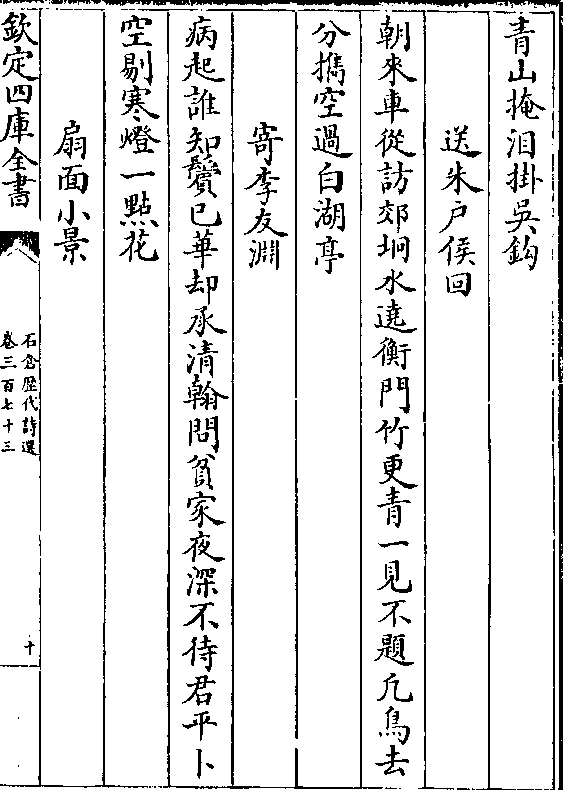 青山掩泪掛吳鈎
送朱户侯回
朝來車從訪郊坰水遶衡門竹更青一見不題凢鳥去
分擕空過白湖亭
寄李友淵
病起誰知鬢已華却承清翰問貧家夜深不待君平卜
空剔寒燈一點花
扇面小景
欽定四庫全書
石倉歷代詩選
卷三百七十三
十